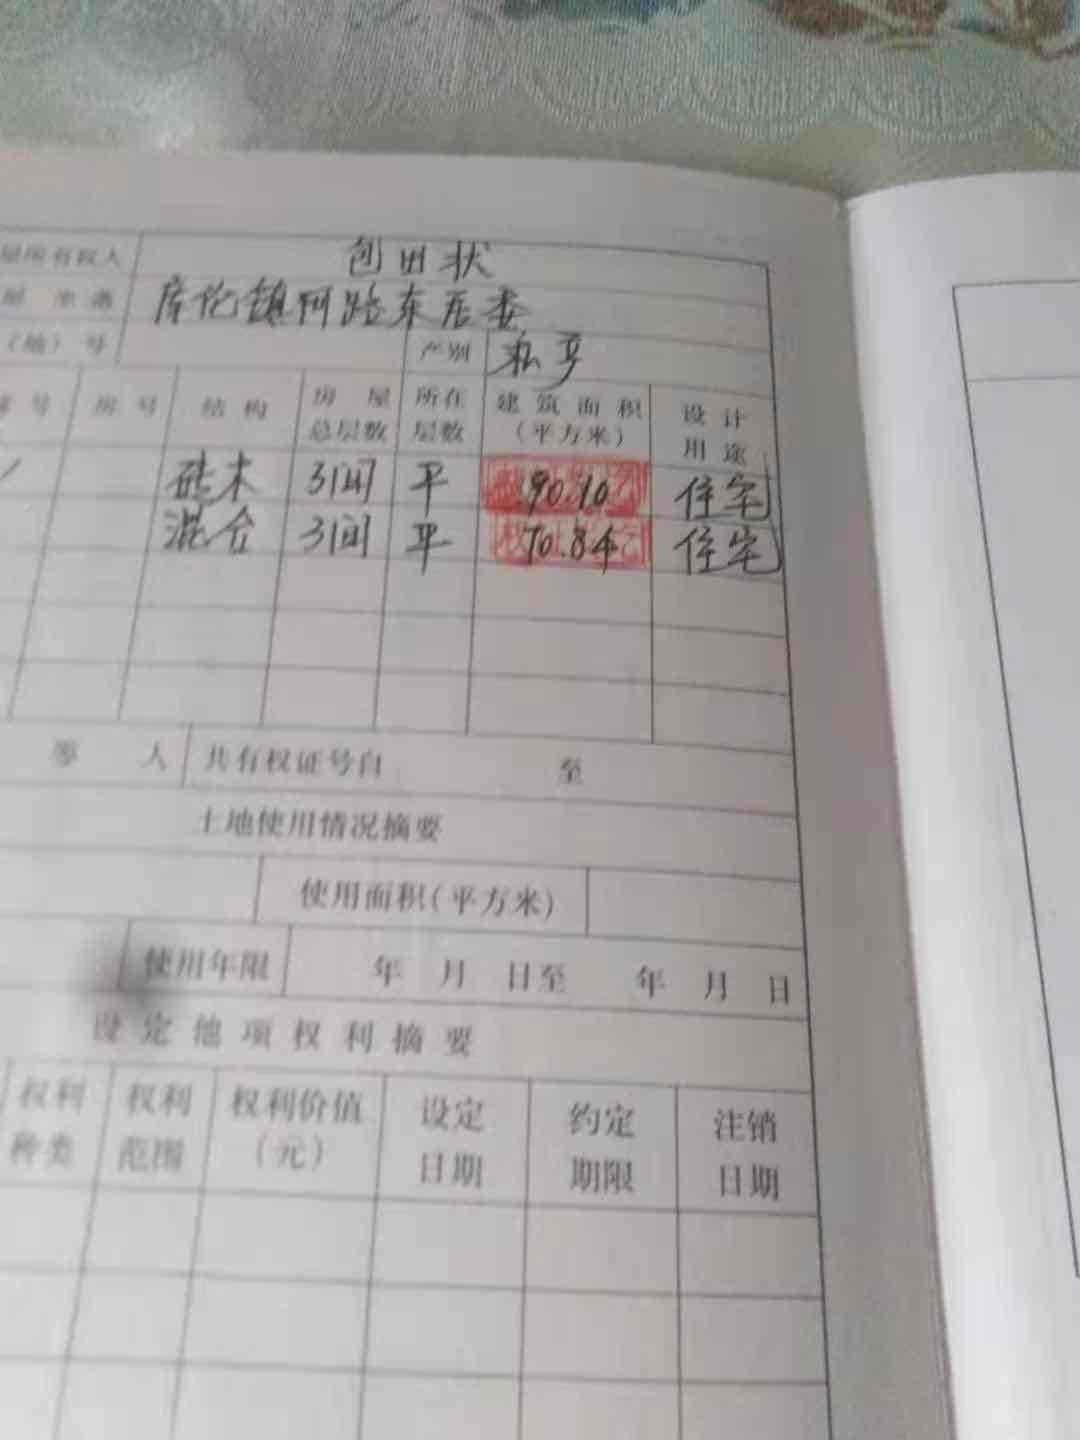 屋所有权人 包田状
屋 坐落 库伦镇阿路东居委
(地) 号 产别 私
号 房号 结构 房屋总层数 所在层数 建筑面积(平方米) 设计用途
砖木 3间 平 90.10 住宅
混合 3间 平 70.84 住宅
等 人 共有权证号自 至
土地使用情况摘要
使用面积(平方米)
使用年限 年 月 日至 年 月 日
设定他项权利摘要
权利种类 权利范围 权利价值(元) 设定日期 约定期限 注销日期